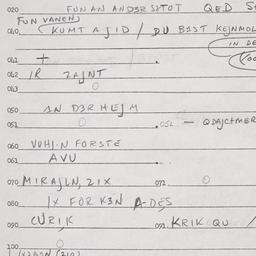 020 FUN AN AND3R STOT QED
FUN VANEN)
040. (KUMT AJID / DU B1ST KEJNMOL
IN DE
041 +
042 IR ZAJNT
043 O
050 IN D3R HEJM
051 O 052 — QDAJCTMER
060 VUHIN FORSTE
061 AVU
070 MIRAJLN, ZIX 072. O
080 IX FOR K3N A-DES
090 CURIK 091. KRIK QU /
100 O